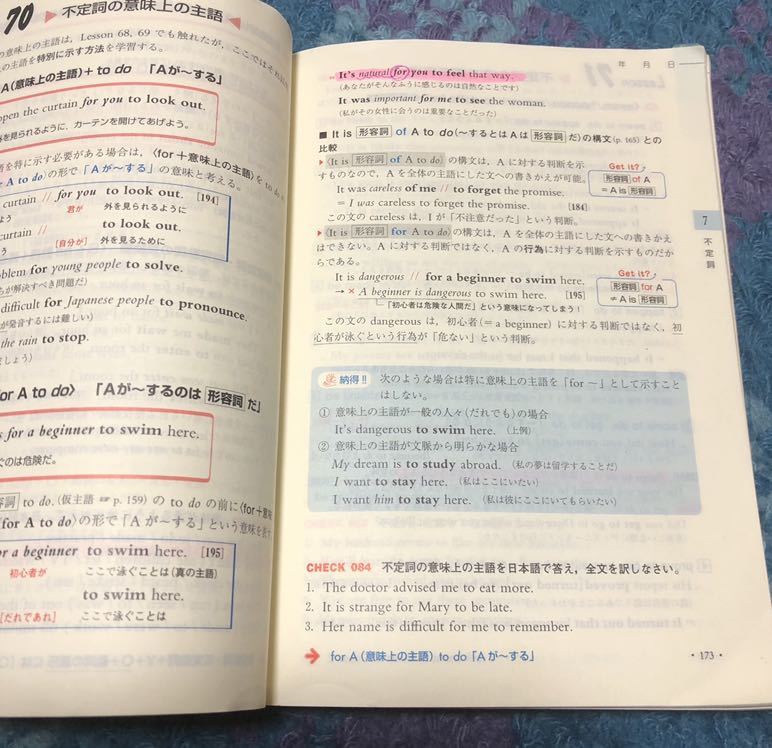 70 ▶ 不定詞の意味上の主語 ◀
の意味上の主語は, Lesson 68, 69 でも触れたが, ここでは
の主語を特別に示す方法を学習する。
A(意味上の主語)＋to do 「Aが～する」
open the curtain for you to look out.
外を見られるように, カーテンを開けてあげよう。
を特に示す必要がある場合は,〈for＋意味上の主語〉を to do
for A to do〉の形で「Aが～する」の意味と考える。
curtain // for you to look out. [194]
君が 外を見られるように
curtain // to look out.
[自分が] 外を見るために
problem for young people to solve.
が解決すべき問題だ)
difficult for Japanese people to pronounce.
が発音するには難しい)
the rain to stop.
ましょう)
for A to do〉 「Aが～するのは 形容詞 だ」
for a beginner to swim here.
ぐのは危険だ。
容詞 to do. (仮主語 ☞ p. 159) の to do の前に〈for＋意味
〈for A to do〉の形で「Aが～する」という意味を表す
for a beginner to swim here. [195]
初心者が ここで泳ぐことは(真の主語)
to swim here.
[だれであれ] ここで泳ぐことは
年 月 日
It's natural for you to feel that way.
(あなたがそんなふうに感じるのは自然なことです)
It was important for me to see the woman.
(私がその女性に会うのは重要なことだった)
■ It is 形容詞 of A to do (～するとはAは 形容詞 だ) の構文 (p. 165) との
比較
▶〈It is 形容詞 of A to do〉の構文は, A に対する判断を示
すものなので, A を全体の主語にした文への書きかえが可能。
It was careless of me // to forget the promise.
= I was careless to forget the promise. [184]
この文の careless は, I が「不注意だった」という判断。
Get it?
形容詞 of A
= A is 形容詞
▶〈It is 形容詞 for A to do〉の構文は, A を全体の主語にした文への書きかえ
はできない。A に対する判断ではなく, A の行為に対する判断を示すものだか
らである。
It is dangerous // for a beginner to swim here.
→ × A beginner is dangerous to swim here. [195]
「初心者は危険な人間だ」という意味になってしまう!
Get it?
形容詞 for A
≠ A is 形容詞
この文の dangerous は, 初心者(= a beginner)に対する判断ではなく, 初
心者が泳ぐという行為が「危ない」という判断。
納得!! 次のような場合は特に意味上の主語を「for ～」として示すこと
はしない。
① 意味上の主語が一般の人々(だれでも)の場合
It's dangerous to swim here. (上例)
② 意味上の主語が文脈から明らかな場合
My dream is to study abroad. (私の夢は留学することだ)
I want to stay here. (私はここにいたい)
I want him to stay here. (私は彼にここにいてもらいたい)
CHECK 084 不定詞の意味上の主語を日本語で答え, 全文を訳しなさい。
1. The doctor advised me to eat more.
2. It is strange for Mary to be late.
3. Her name is difficult for me to remember.
→ for A (意味上の主語) to do「Aが～する」
7
不定詞
・173・